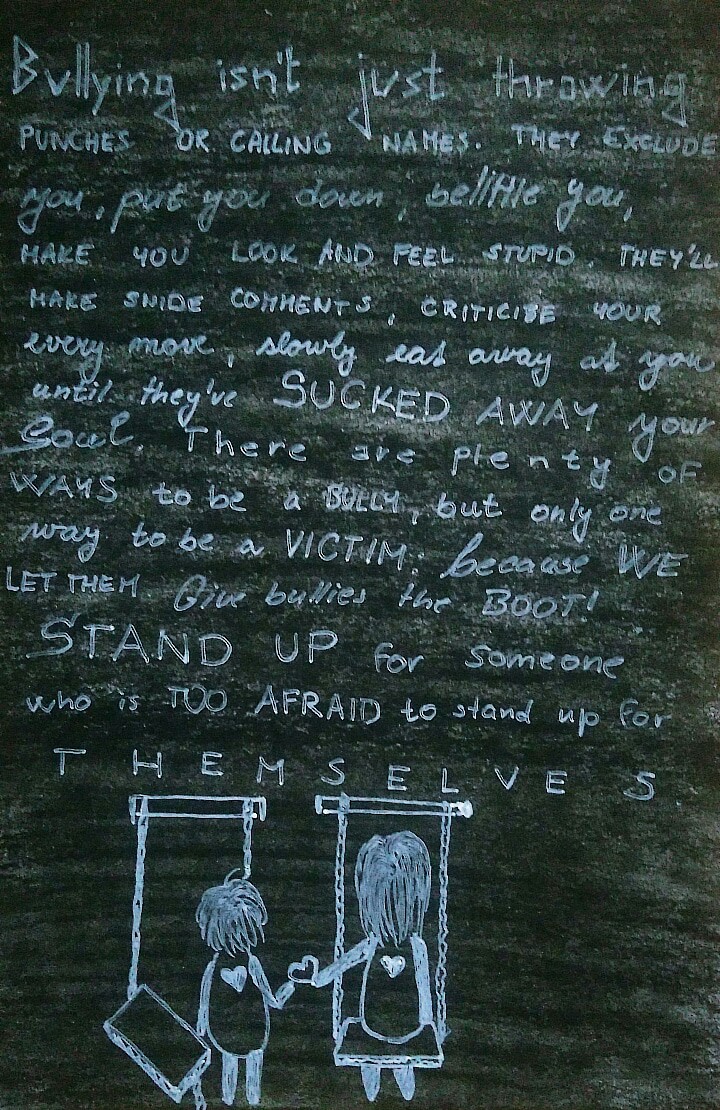 Bullying isn't just throwing
PUNCHES OR CALLING NAMES. THEY EXCLUDE
you, put you down, belittle you,
MAKE YOU LOOK AND FEEL STUPID. THEY'LL
MAKE SNIDE COMMENTS, CRITICISE YOUR
every move, slowly eat away at you
until they've SUCKED AWAY your
Soul. There are plenty OF
WAYS to be a BULLY, but only one
way to be a VICTIM: because WE
LET THEM Give bullies the BOOT!
STAND UP for someone
who is TOO AFRAID to stand up for
THEMSELVES